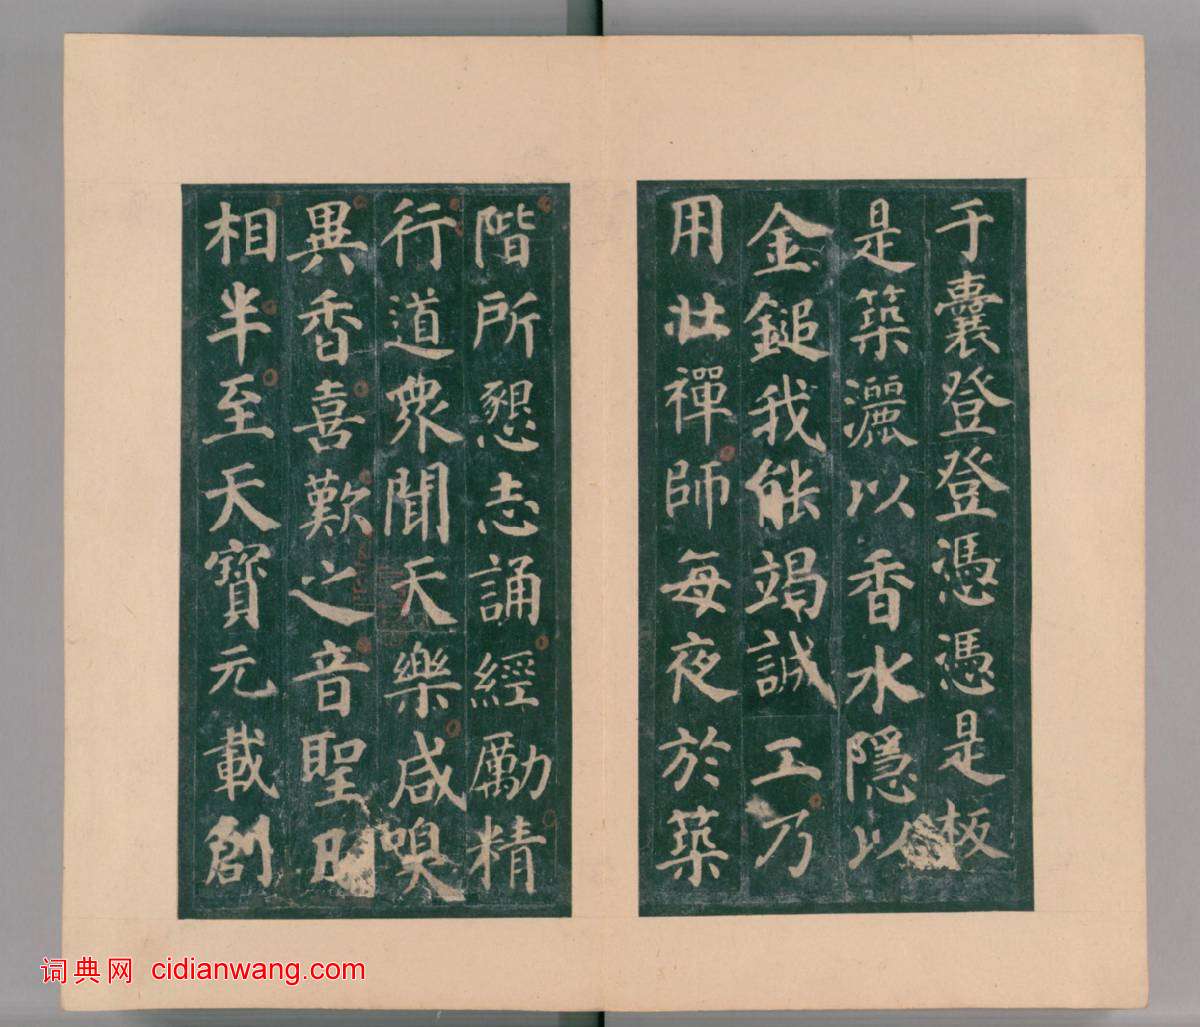 于囊登登憑憑是板
是築灑以香水隱以
金鎚我能竭誠工乃
用壯禪師每夜於築
階所懇志誦經勵精
行道衆聞天樂咸嗅
異香喜歎之音聖
相半至天寶元載創
词典网 cidianwang.com